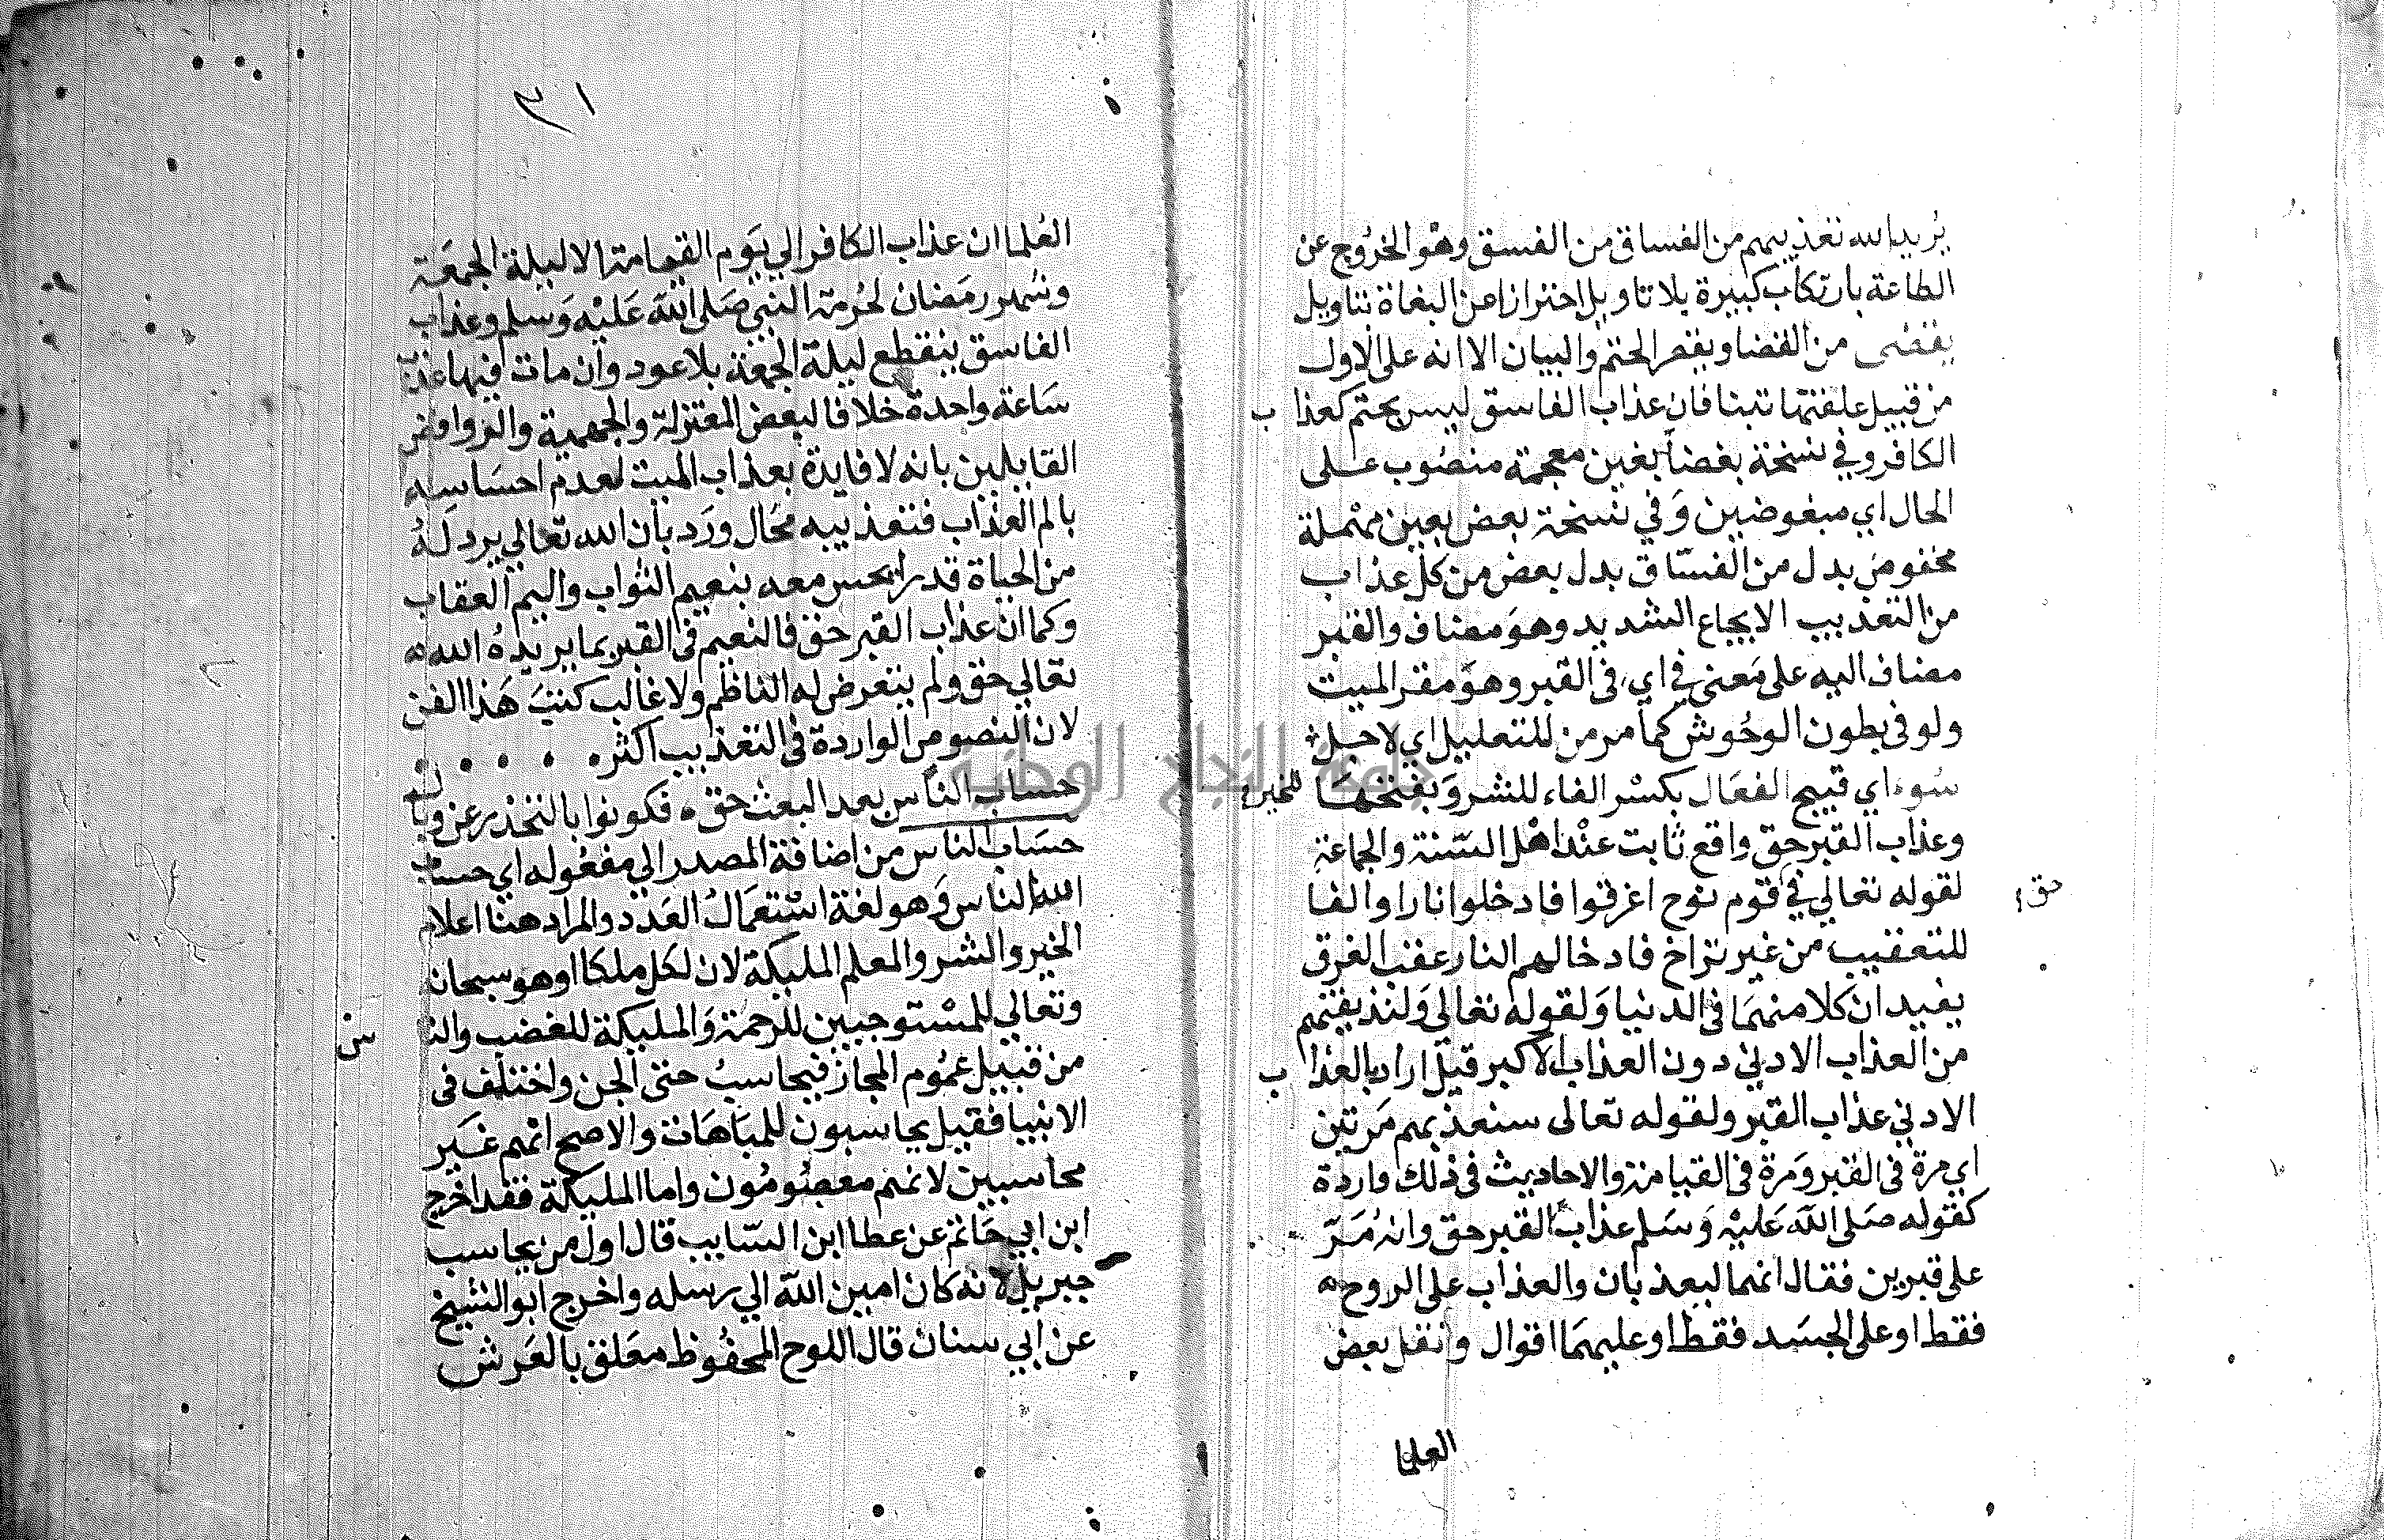 يُريد الله تعذيبهم من الفساق من الفسق وهو الخروج عن
الطاعة بارتكاب كبيرة بلا تاويل احترازا عن البغاة بتاويل
يقضى من القضا ويقصر الحتم والبيان الا انه على الاول
من قبيل علفتها تبنا فان عذاب الفاسق ليس بحتم كعذاب
الكافر وفي نسخة بغضاً بغين معجمة منصوب على
الحال اي مبغوضين وفي نسخة بعض بعين مهملة
مخفوض بدل من الفسّاق بدل بعض من كل عذاب
من التعذيب الايجاع الشديد وهو مضاف والقبر
مضاف اليه على معنى في اي في القبر وهو مقر الميت
ولو في بطون الوحوش كما مر من للتعليل اي لاجل
سُوء اي قبيح الفعَال بكسر الفاء للشر وبفتحها للخير
وعذاب القبر حق واقع ثابت عند اهل السّنة والجماعة
حق
لقوله تعالي في قوم نوح اغرقوا فادخلوا نارا والفا
للتعقيب من غير تراخ فادخالهم النار عقب الغرق
يفيد ان كلا منهما في الدنيا ولقوله تعالي ولنذيقنهم
من العذاب الادني دون العذاب الاكبر قيل اراد بالعذاب
الادني عذاب القبر ولقوله تعالى سنعذبهم مرتين
اي مرة في القبر ومرة في القيامة والاحاديث في ذلك واردة
كقوله صلى الله عليه وسلم عذاب القبر حق وانه مَرّ
على قبرين فقال انهما ليعذبان والعذاب على الروح
فقط او على الجسَد فقط او عليهمَا اقوال ونقل بعض
العلما
٣١
العُلما ان عذاب الكافر الي يَوم القيامة الا ليلة الجمعَة
وشهر رمَضان لحُرمة النبي صَلى الله عَليْه وَسلم وعذاب
الفاسق ينقطع ليلة الجمعة بلا عود وان مات فيها عذب
سَاعة واحدة خلافا لبعض المعتزلة والجهمية والروافض
القايلين بانه لا فايدة بعذاب الميت لعدم احسَاسه
بالم العذاب فتعذيبه محَال ورَد بان الله تعالي يرد لَهُ
من الحياة قدر ما يحس معه بنعيم الثواب واليم العقاب
وكما ان عذاب القبر حق فالنعيم في القبر بما يريدُه الله
تعالي حق ولم يتعرض له الناظم ولا غالب كتبَ هَذا الفن
لان النصوص الواردة في التعذيب اكثر
حساب الناس بعد البعث حق فكونوا بالتحذر عن وبال
حسَاب الناس من اضافة المصدر الي مفعُوله اي حساب
الله الناس وَهو لغة اسْتعمَالُ العَدد والمراد هنا اعلام
الخير والشر والمعلم المليكة لان لكل ملكا او هو سبحانه
وتعالي للمسْتوجبين للرحمة وَالمليكة للغضب والناس
من قبيل عمُوم المجاز فيحاسبُ حتى الجن واختلف في
الانبيا فقيل يحاسبون للمبَاهَات والاصح انهم غَير
محاسبين لانهم معصُومُون واما المليكة فقد اخرج
ابن ابي حَاتم عن عطا ابن السّايب قال اول من يحاسب
جبريل لانه كان امين الله الي رسله واخرج ابو الشيخ
عن ابي سنان قال اللوح المحفُوظ معَلق بالعَرش
جامعة النجاح الوطنية